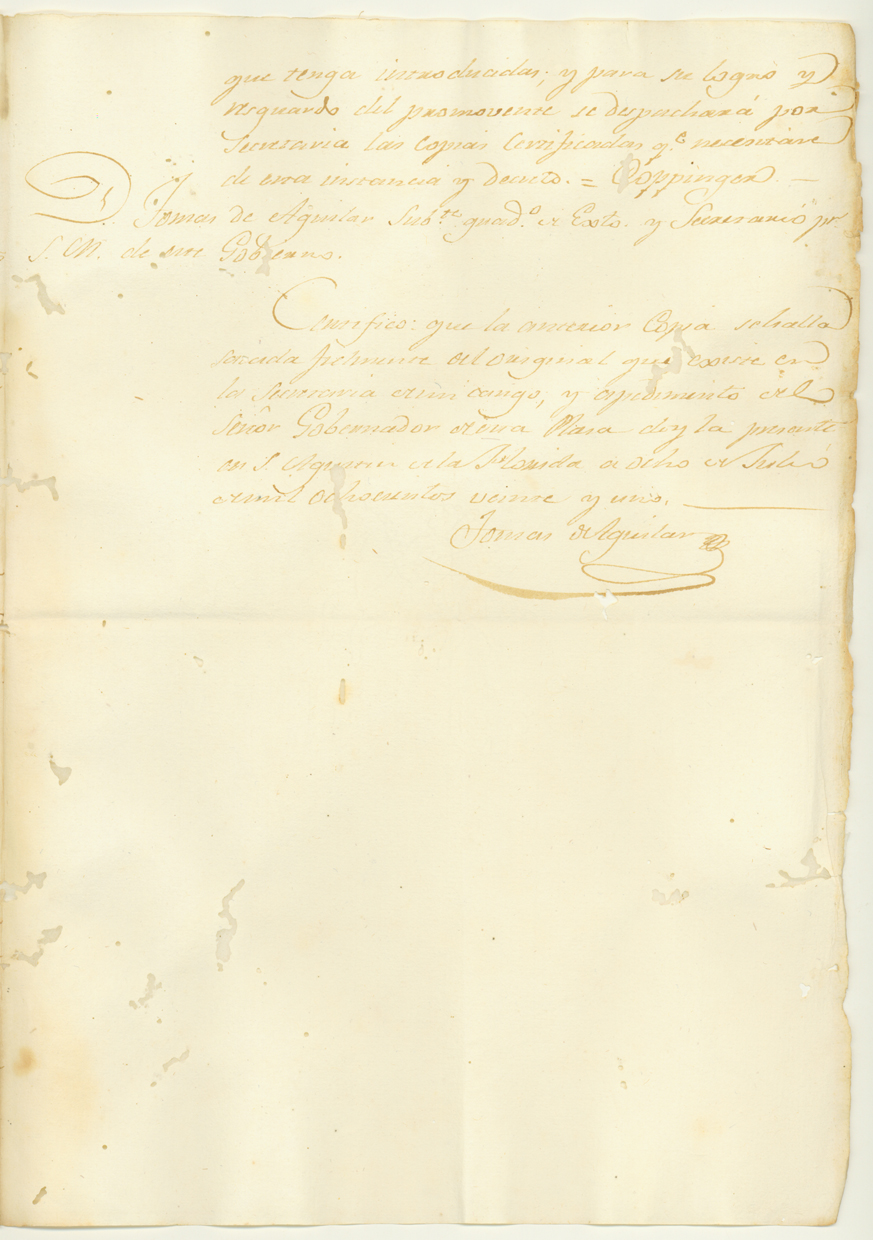 que tenga introducidas; y para su logro y
resguardo del promovente se despachará por
Secretaria las copias Certificadas q.e necesitare
de esta instancia y decreto. = Coppinger. —
D. Tomas de Aguilar Sub.te grad.o de Exto. y Secretario p.r
S. M. de este Gobierno.
Certifico: que la anterior Copia se halla
sacada fielmente del original que existe en
la Secretaria de mi cargo; y a pedimento del
Señor Gobernador de esta Plaza doy la presente
en S. Agustin de la Florida a ocho de Julio
de mil ochocientos veinte y uno.
Tomas de Aguilar